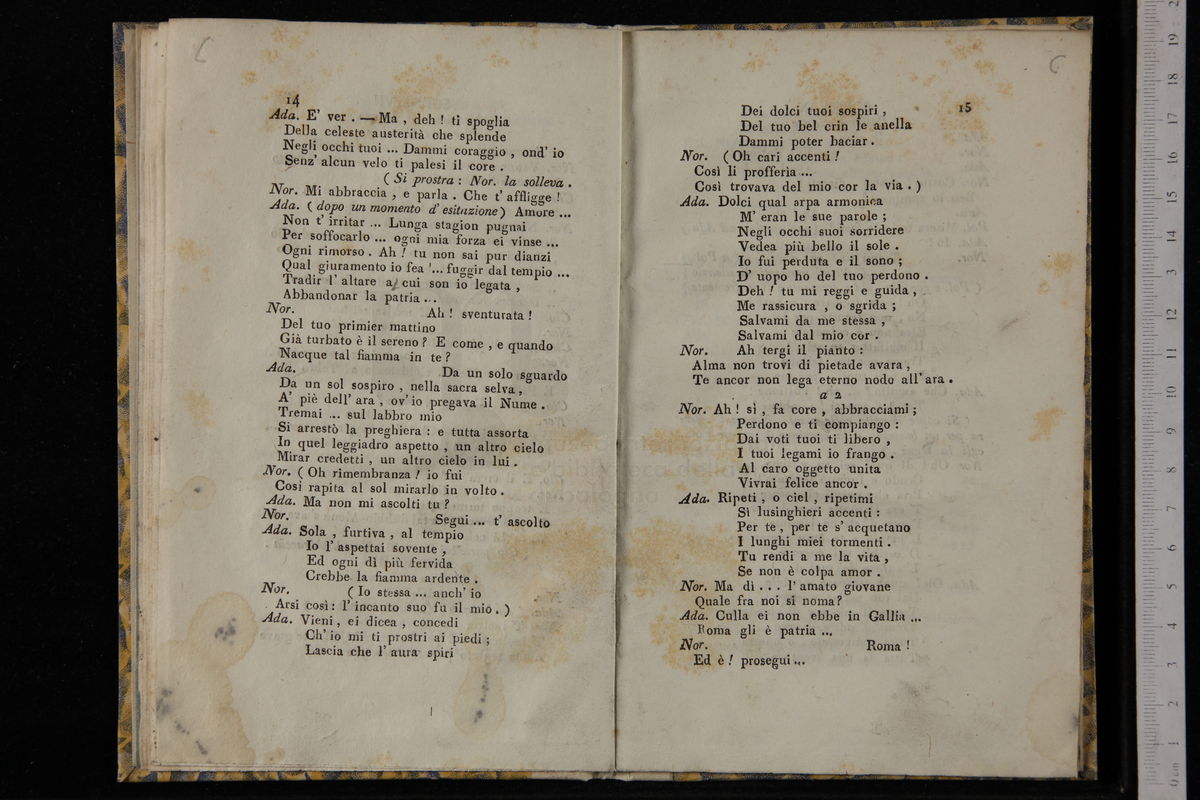 14
Ada. E' ver . — Ma , deh ! ti spoglia
Della celeste austerità che splende
Negli occhi tuoi ... Dammi coraggio , ond' io
Senz' alcun velo ti palesi il core .
( Si prostra : Nor. la solleva .
Nor. Mi abbraccia , e parla . Che t' affligge !
Ada. ( dopo un momento d' esitazione ) Amore ...
Non t' irritar ... Lunga stagion pugnai
Per soffocarlo ... ogni mia forza ei vinse ...
Ogni rimorso . Ah ! tu non sai pur dianzi
Qual giuramento io fea '... fuggir dal tempio ...
Tradir l' altare a cui son io legata ,
Abbandonar la patria ...
Nor. Ah ! sventurata !
Del tuo primier mattino
Già turbato è il sereno ? E come , e quando
Nacque tal fiamma in te ?
Ada. Da un solo sguardo
Da un sol sospiro , nella sacra selva ,
A' piè dell' ara , ov' io pregava il Nume .
Tremai ... sul labbro mio
Si arrestò la preghiera : e tutta assorta
In quel leggiadro aspetto , un altro cielo
Mirar credetti , un altro cielo in lui .
Nor. ( Oh rimembranza ! io fui
Così rapita al sol mirarlo in volto .
Ada. Ma non mi ascolti tu ?
Nor. Segui ... t' ascolto
Ada. Sola , furtiva , al tempio
Io l' aspettai sovente ,
Ed ogni dì più fervida
Crebbe la fiamma ardente .
Nor. ( Io stessa ... anch' io
Arsi così : l' incanto suo fu il mio . )
Ada. Vieni , ei dicea , concedi
Ch' io mi ti prostri ai piedi ;
Lascia che l' aura spiri
15
Dei dolci tuoi sospiri ,
Del tuo bel crin le anella
Dammi poter baciar .
Nor. ( Oh cari accenti !
Così li profferia ...
Così trovava del mio cor la via . )
Ada. Dolci qual arpa armonica
M' eran le sue parole ;
Negli occhi suoi sorridere
Vedea più bello il sole .
Io fui perduta e il sono ;
D' uopo ho del tuo perdono .
Deh ! tu mi reggi e guida ,
Me rassicura , o sgrida ;
Salvami da me stessa ,
Salvami dal mio cor .
Nor. Ah tergi il pianto :
Alma non trovi di pietade avara ,
Te ancor non lega eterno nodo all' ara .
a 2
Nor. Ah ! sì , fa core , abbracciami ;
Perdono e ti compiango :
Dai voti tuoi ti libero ,
I tuoi legami io frango .
Al caro oggetto unita
Vivrai felice ancor .
Ada. Ripeti , o ciel , ripetimi
Sì lusinghieri accenti :
Per te , per te s' acquetano
I lunghi miei tormenti .
Tu rendi a me la vita ,
Se non è colpa amor .
Nor. Ma di . . . l' amato giovane
Quale fra noi si noma?
Ada. Culla ei non ebbe in Gallia ...
Roma gli è patria ...
Nor. Roma !
Ed è ! prosegui ...